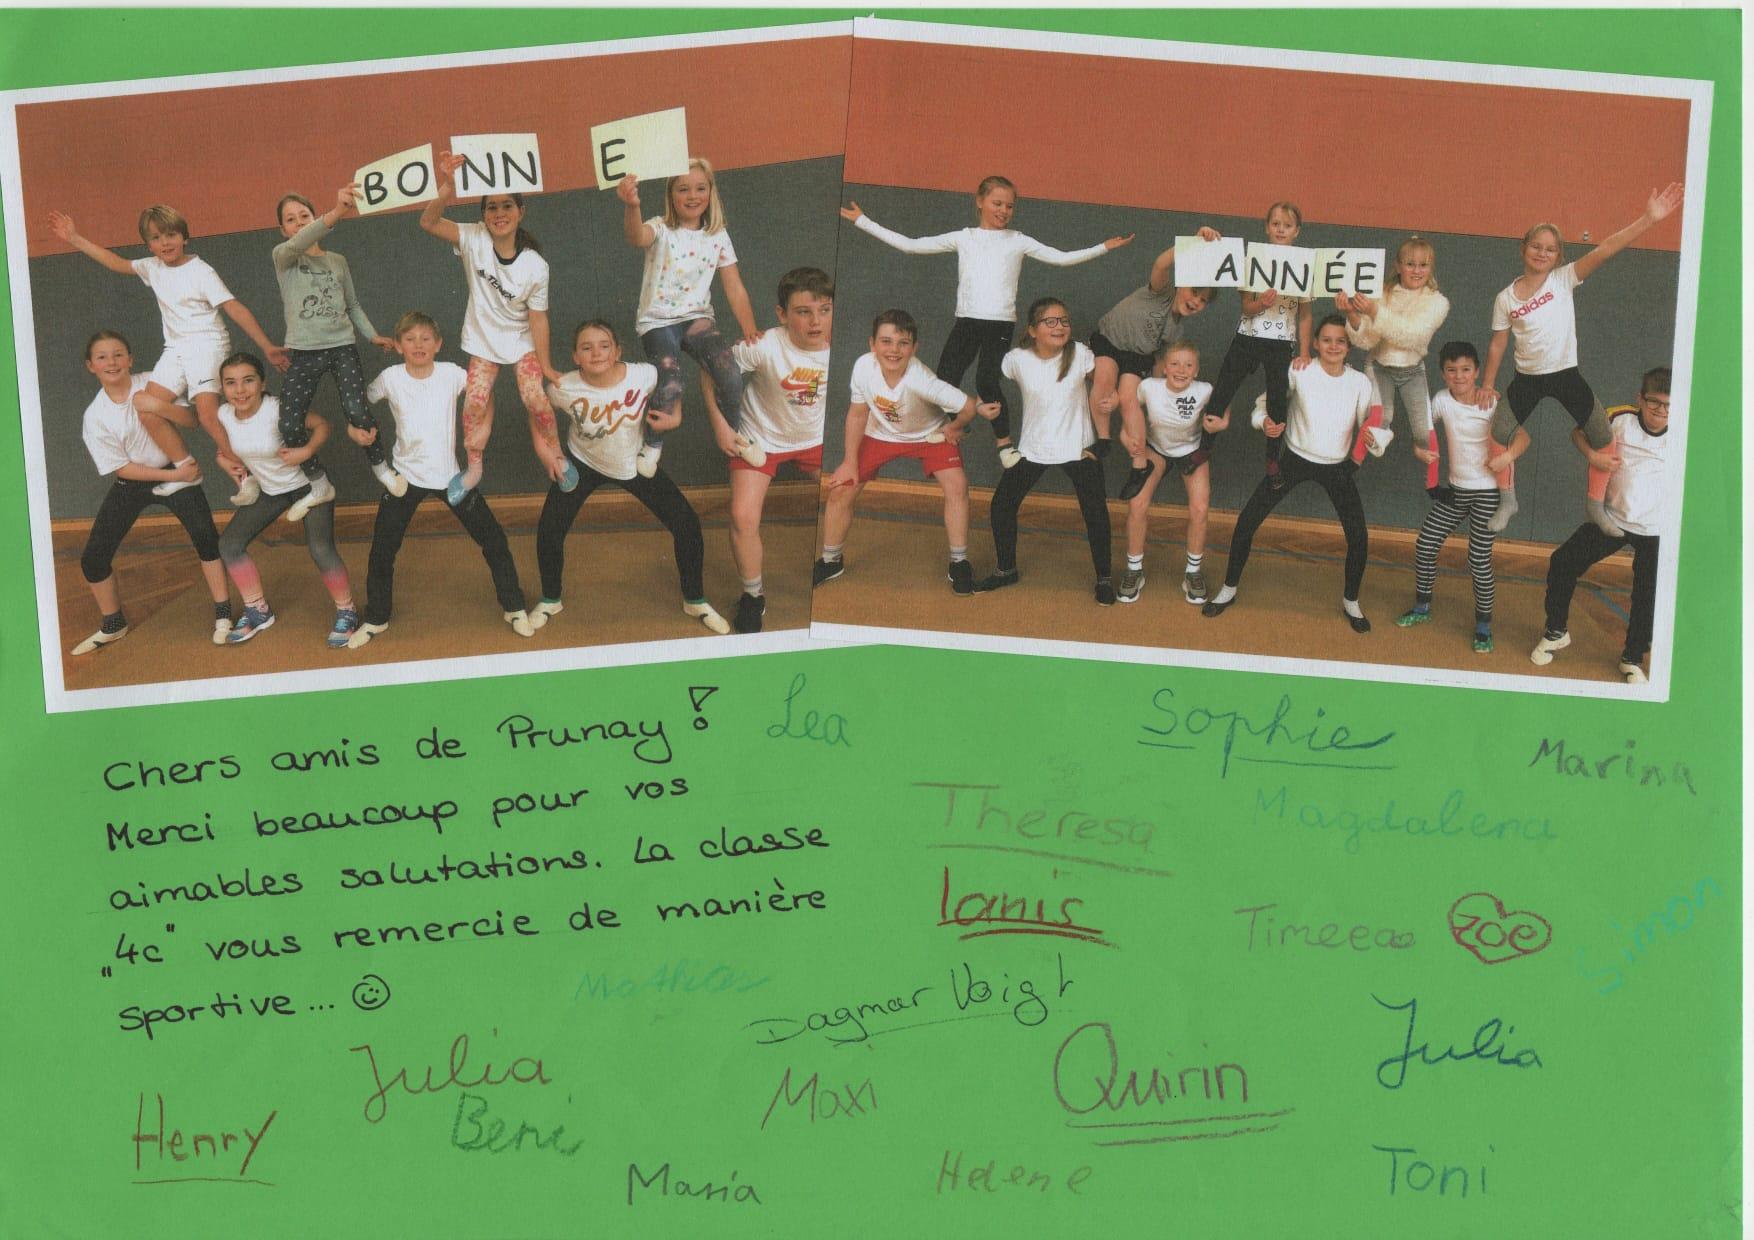 BO NN E
A NN ÉE
TENEX
Pepe
NIKE
NIKE
FILA
FILA
FILA
FILA
adidas
Chers amis de Prunay!
Merci beaucoup pour vos
aimables salutations. La classe
„4c" vous remercie de manière
sportive... ☺
Lea
Sophie
Marina
Theresa
Magdalena
Ianis
Timeea
Zoe
Simon
Mathias
Dagmar Voigt
Julia
Julia
Beni
Maxi
Quirin
Henry
Maria
Helene
Toni